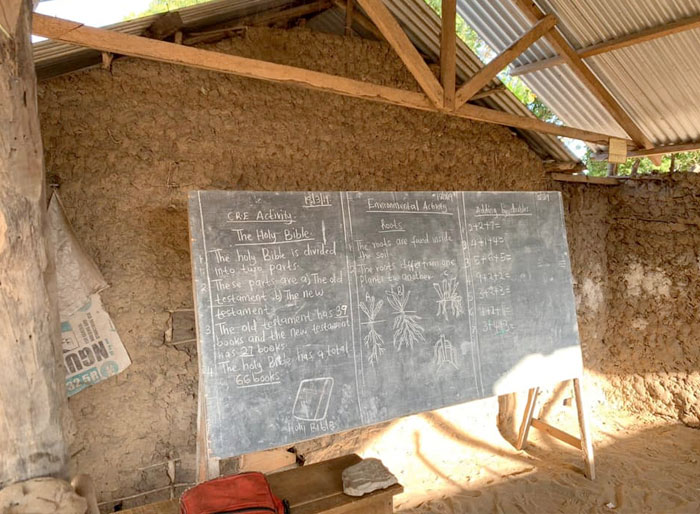 C.R.E Activity.
The Holy Bible.
1. The holy Bible is divided
into two parts.
2. These parts are a) The old
testament b) The new
testament.
3. The old testament has 39
books and the new testament
has 27 books
4. The holy Bible has a total
66 books
Holy Bible
Environmental Activity
Roots
1. The roots are found inside
the soil.
2. The roots differ from one
plant to another.
Adding
3+2+7=
4+1+4=
5+6+5=
NGU